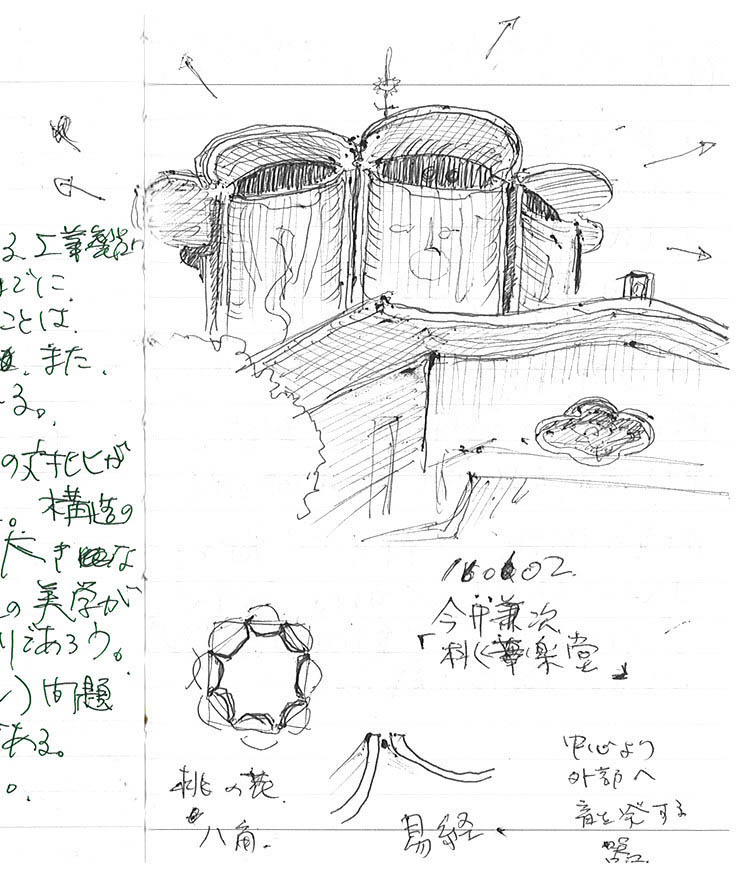 る工業製品
までに
ことは
また、
る。
の対比が
。構造の
大きな
の美学が
りであろう。
)問題
である。
。
160602.
今井兼次
「桃華楽堂」
桃の花.
八角.
易経.
中心より
外部へ
音を発する
器.